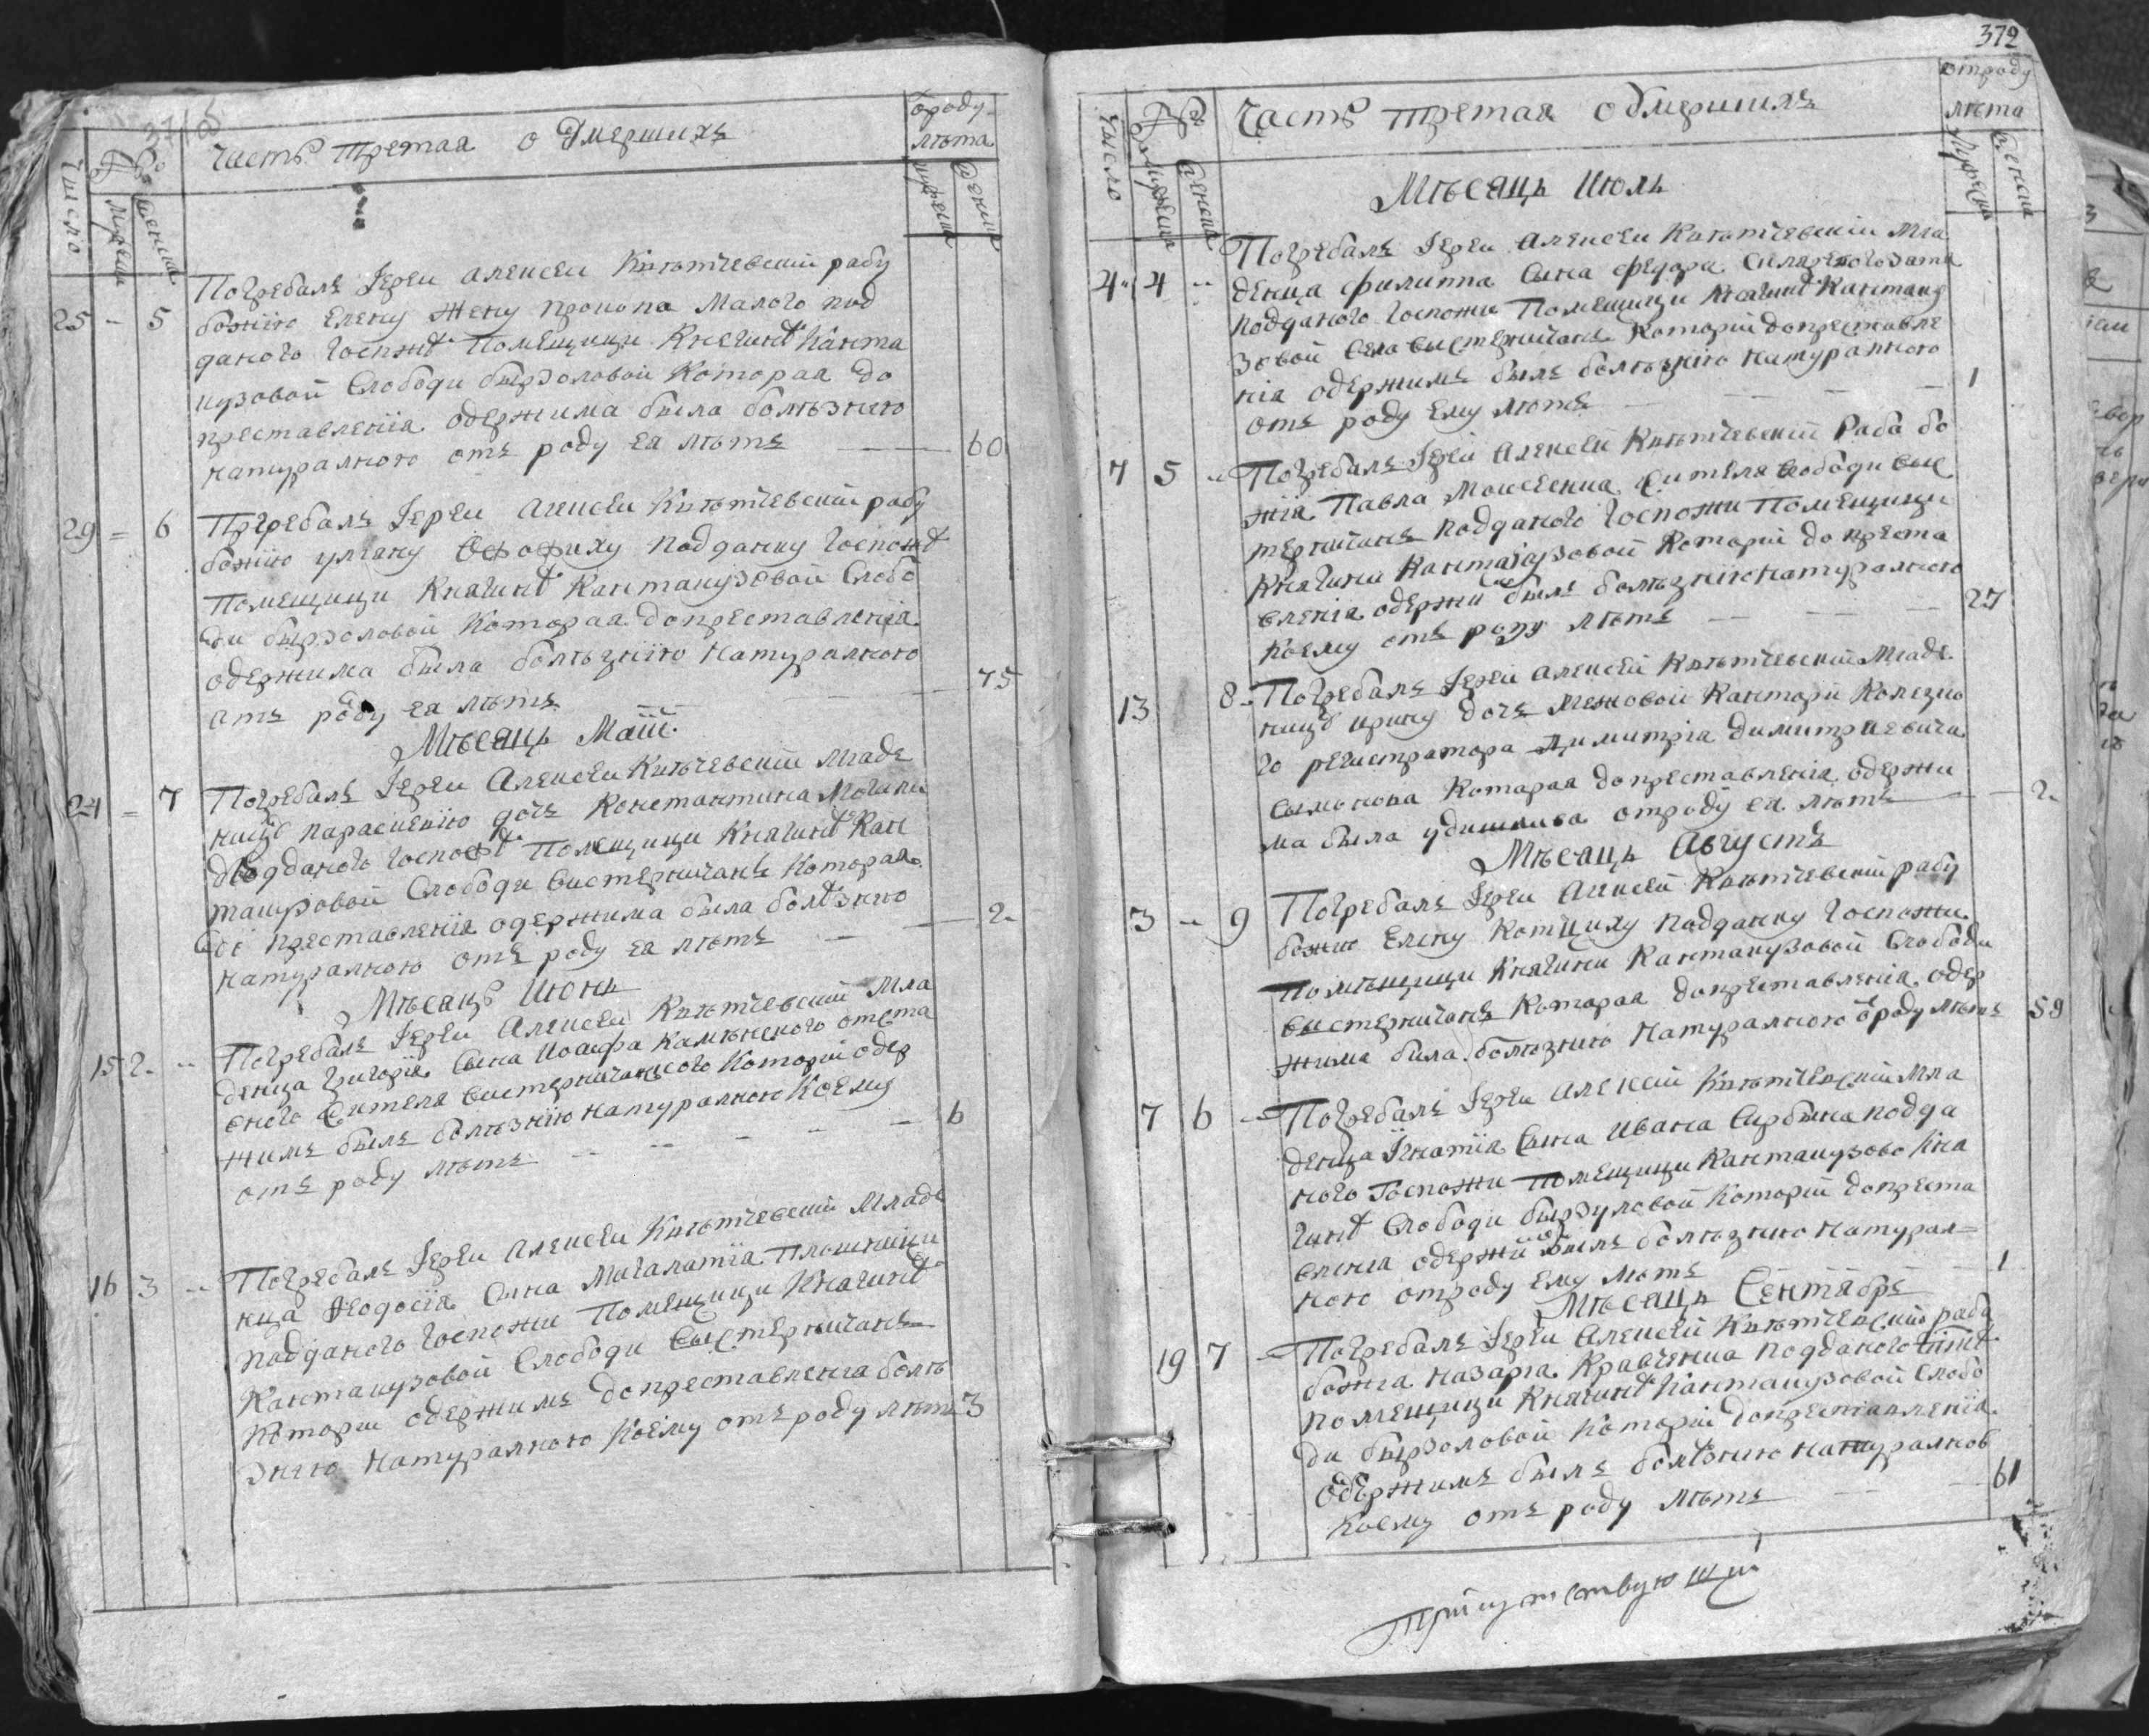 Часть третая о Умершихъ
ѿроду
лѣта
число
мужеска
женска
мужеска
женска
Погребалъ Іереи Алексеи Кнѣтчевскіи рабу
25 - 5 божію Елену жену Прокопа Малого под
даного госпожѣ помещици Княгинѣ Канта
кузовой Слободи бырзоловой которая до
преставленія одержима была болѣзнію
натуралною отъ роду ея лѣтъ 60
29 = 6 Погребалъ Іереи Алексеи Кнѣтчевскіи рабу
божію улияну подданку госпожѣ
помещици Княгинѣ Кантакузовой Слобо
ди бырзоловой которая допреставленія
одержима была болѣзнію натуралною
отъ роду ея лѣтъ 75
Мѣсяцъ Маій
24 = 7 Погребалъ Іереи Алексеи Кнѣтчевскіи младе
ницу параскевію дочъ Константина
подданого госпожѣ помещици Княгинѣ Кан
такузовой Слободи Быстерничанъ которая
до преставленія одержима была болѣзнію
натуралною отъ роду ея лѣтъ 2
Мѣсяцъ Июнь
Погребалъ Іереи Алексеи Кнѣтчевскіи мла
15 2 денца Григорія сына Иоанфа Камѣнского отста
вного жителя быстерничанского которіи одер
жимъ былъ болѣзнію натуралною коему
отъ роду лѣтъ 6
16 3 Погребалъ Іереи Алексеи Кнѣтчевскіи младе
нца Ѳеодосія сына Михалатія
подданого госпожи помещици Княгинѣ
Кантакузовой Слободи Быстерничанъ
которіи одержимъ допреставления болѣ
знию натуралною коему отъ роду лѣтъ 3
372
Часть третая о Умершихъ
отроду
лѣта
число
мужеска
женска
мужеска
женска
Мѣсяцъ Июль
Погребалъ Іереи Алексеи Кнѣтчевскіи мла
4 4 денца филиппа сына федора зятя
подданого госпожи помещици Княгинѣ Кантаку
зовой села Быстерничанъ которіи допреставле
нія одержимъ былъ болѣзнію натуралною
отъ роду ему лѣтъ 1
7 5 Погребалъ Іерей Алексей Кнѣтчевскій раба бо
жія Павла жителя слободи быс
терничанъ подданого госпожи помещици
Княгини Кантакузовой которіи до преста
вленія одержимъ былъ болѣзнію натуралною
коему отъ роду лѣтъ 27
13 8 Погребалъ Іерей Алексей Кнѣтчевскій младе
ницу ирину дочъ межовой канторіи колезко
го регистратора димитрія димитриевича
которая допреставленія одержи
ма была отроду ея лѣтъ 2
Мѣсяцъ Августъ
3 9 Погребалъ Іереи Алексей Кнѣтчевскіи рабу
божию Елену подданку госпожи
помѣщици Княгини Кантакузовой Слободи
быстерничанъ которая допреставленія одер
жима била болѣзнию натуралною ѿроду лѣтъ 59
7 6 Погребалъ Іереи Алексій Кнѣтчевскіи мла
денца Ігнатія сына Ивана подда
ного госпожи помещици Кантакузово кня
гинѣ Слободи бырзуловой которіи допреста
вления одержимъ былъ болѣзнию натурал=
ною отроду ему лѣтъ 1
Мѣсяцъ Сентябръ
19 7 Погребалъ Іереи Алексей Кнѣтчевскіи раба
божия назарія Кравченка подданого
помещици Княгинѣ Кантакузовой Слобо
ди бырзоловой которіи допреставленія
одержимъ былъ болѣзнию натуралною
коему отъ роду лѣтъ 61